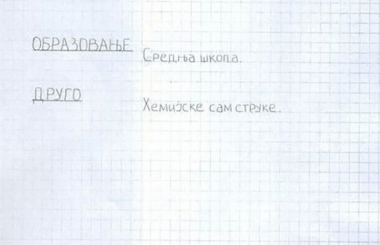 ОБРАЗОВАЊЕ Средња школа.
ДРУГО Хемијске сам струке.